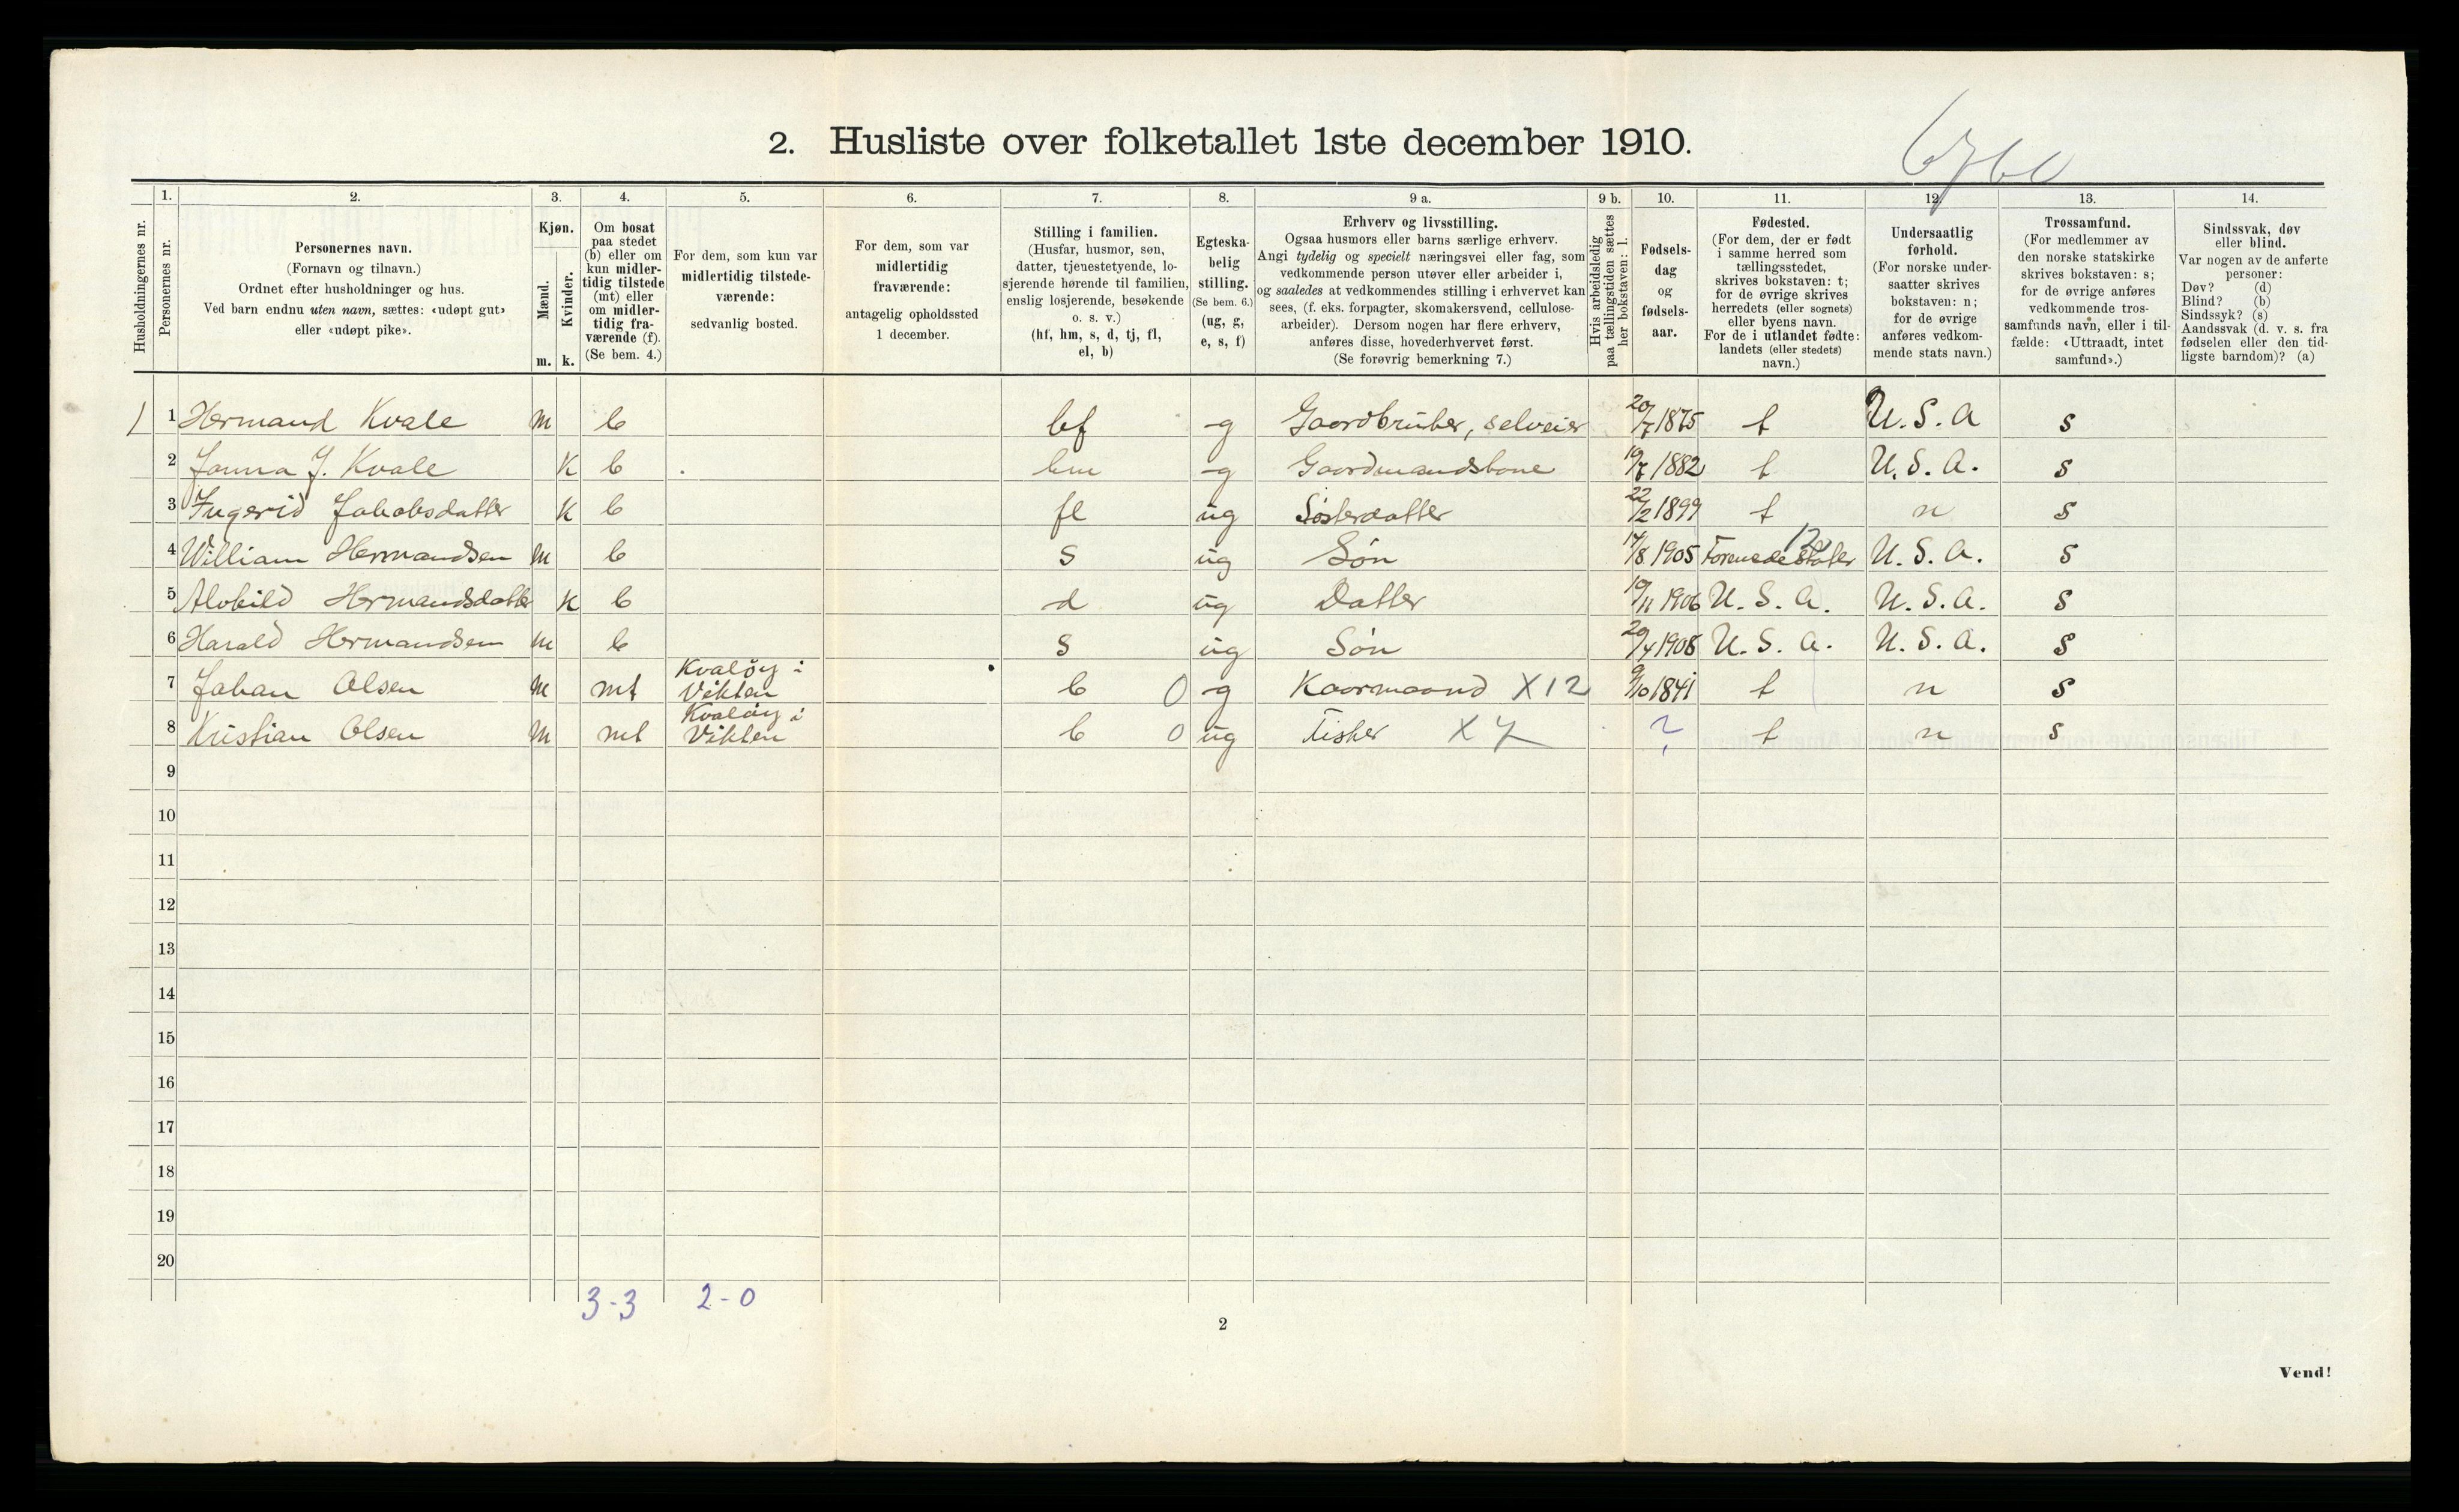 2. Husliste over folketallet 1ste december 1910.
Husholdningernes nr.
1.
Personernes nr.
2.
Personernes navn.
(Fornavn og tilnavn.)
Ordnet efter husholdninger og hus.
Ved barn endnu uten navn, sættes: «udøpt gut»
eller «udøpt pike».
3.
Kjøn.
Mænd.
Kvinder.
m. k.
4.
Om bosat
paa stedet
(b) eller om
kun midler-
tidig tilstede
(mt) eller
om midler-
tidig fra-
værende (f).
(Se bem. 4.)
5.
For dem, som kun var
midlertidig tilstede-
værende:
sedvanlig bosted.
6.
For dem, som var
midlertidig
fraværende:
antagelig opholdssted
1 december.
7.
Stilling i familien.
(Husfar, husmor, søn,
datter, tjenestetyende, lo-
sjerende hørende til familien,
enslig losjerende, besøkende
o. s. v.)
(hf, hm, s, d, tj, fl,
el, b)
8.
Egteska-
belig
stilling.
(Se bem. 6.)
(ug, g,
e, s, f)
9 a.
Erhverv og livsstilling.
Ogsaa husmors eller barns særlige erhverv.
Angi tydelig og specielt næringsvei eller fag, som
vedkommende person utøver eller arbeider i,
og saaledes at vedkommendes stilling i erhvervet kan
sees, (f. eks. forpagter, skomakersvend, cellulose-
arbeider). Dersom nogen har flere erhverv,
anføres disse, hovederhvervet først.
(Se forøvrig bemerkning 7.)
9 b.
Hvis arbeidsledig
paa tællingstiden sættes
her bokstaven: l.
10.
Fødsels-
dag
og
fødsels-
aar.
11.
Fødested.
(For dem, der er født
i samme herred som
tællingsstedet,
skrives bokstaven: t;
for de øvrige skrives
herredets (eller sognets)
eller byens navn.
For de i utlandet fødte:
landets (eller stedets)
navn.)
12.
Undersaatlig
forhold.
(For norske under-
saatter skrives
bokstaven: n;
for de øvrige
anføres vedkom-
mende stats navn.)
13.
Trossamfund.
(For medlemmer av
den norske statskirke
skrives bokstaven: s;
for de øvrige anføres
vedkommende tros-
samfunds navn, eller i til-
fælde: «Uttraadt, intet
samfund».)
14.
Sindssvak, døv
eller blind.
Var nogen av de anførte
personer:
Døv? (d)
Blind? (b)
Sindssyk? (s)
Aandssvak (d. v. s. fra
fødselen eller den tid-
ligste barndom)? (a)
1 1 Hermand Kvale m b hf g Gaardbruker, selveier 20/7 1875 t U.S.A s
2 Janna J. Kvale k b hm g Gaardmandskone 1882 t U.S.A. s
3 Ingerid Jakobsdatter k b fl ug Søsterdatter 22/2 1899 t n s
4 William Hermandsen m b s ug Søn 17/8 1905 Forenede stater U.S.A. s
5 Alvhild Hermandsdatter k b d ug Datter 19/11 1906 U.S.A. U.S.A. s
6 Harald Hermandsen m b s ug Søn 29/4 1908 U.S.A. U.S.A. s
7 Johan Olsen m mt Kvaløy i Vikten b 0 g Kaarmaand X12 9/10 1841 t n s
8 Kristian Olsen m mt Kvaløy i Vikten b 0 ug Fisker X7 ? t n s
9
10
11
12
13
14
15
16
17
18
19
20
3-3 2-0
2
Vend!